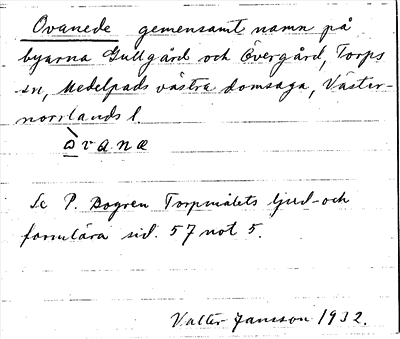 Ovanede gemensamt namn på
byarna Gullgård och Övergård, Torps
sn, Medelpads västra domsaga, Väster-
norrlands l.
òvanæ
Se P. Bogren Torpmålets ljud- och
formlära sid. 57 not 5.
Valter Jansson 1932.